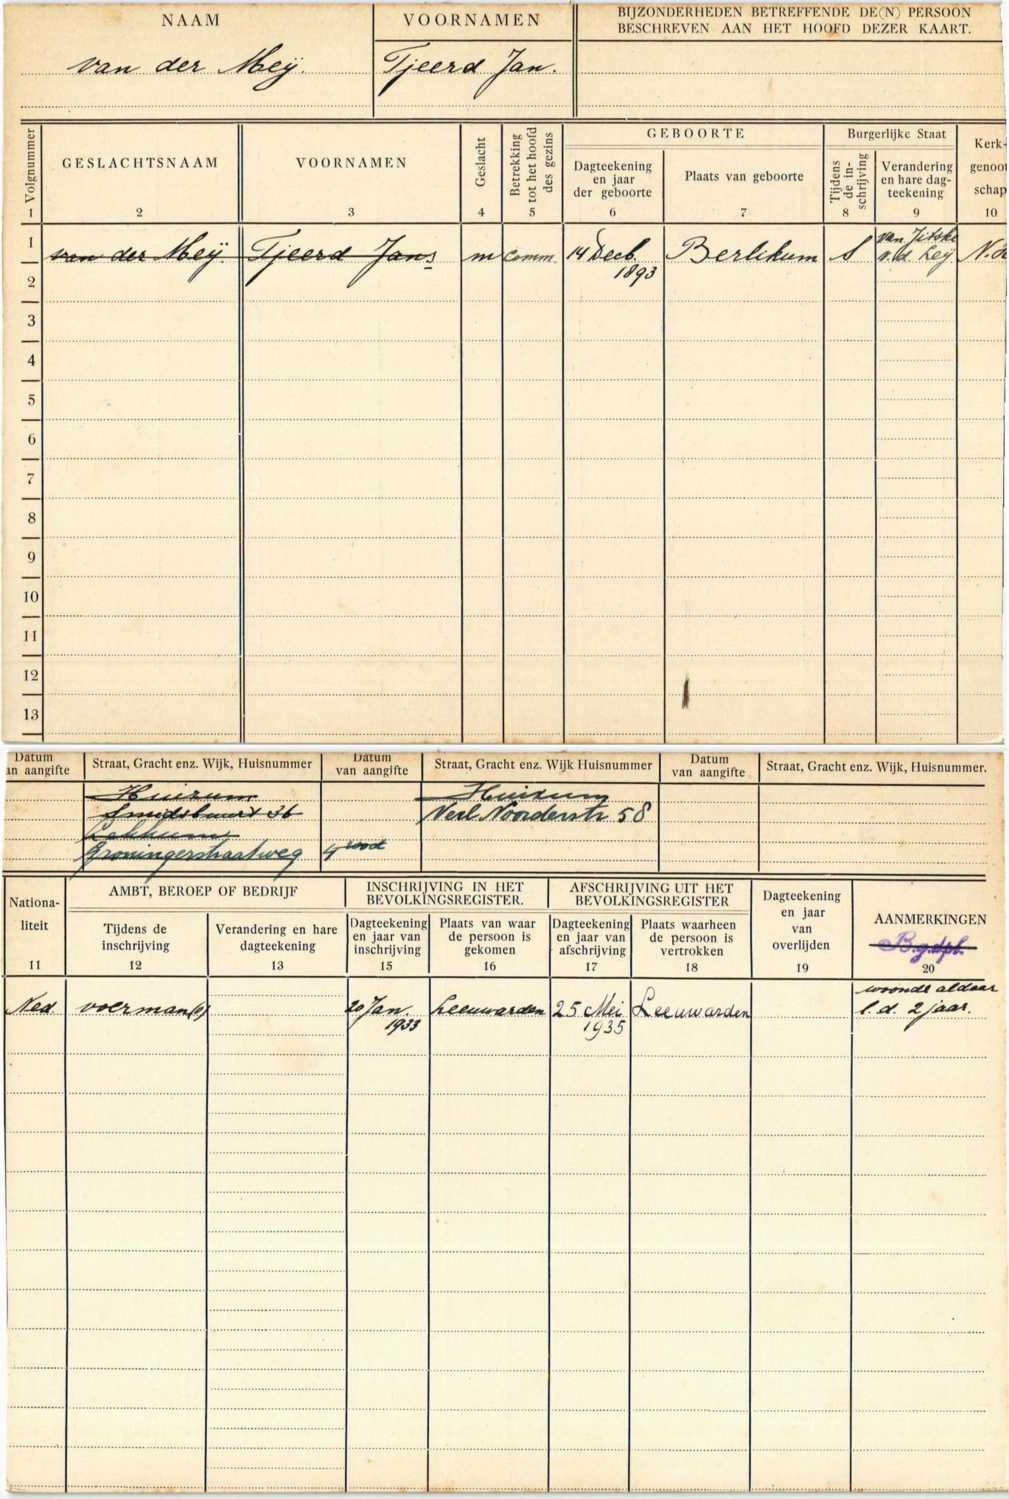 NAAM
VOORNAMEN
BIJZONDERHEDEN BETREFFENDE DE(N) PERSOON
BESCHREVEN AAN HET HOOFD DEZER KAART.
van der Meÿ.
Tjeerd Jan.
Volgnummer
GESLACHTSNAAM
VOORNAMEN
Geslacht
Betrekking
tot het hoofd
des gezins
GEBOORTE
Dagteekening
en jaar
der geboorte
Plaats van geboorte
Burgerlijke Staat
Tijdens
de in-
schrijving
Verandering
en hare dag-
teekening
Kerk-
genoot
schap
1 2 3 4 5 6 7 8 9 10
1 van der Meÿ. Tjeerd Jans m comm. 14 Decb. 1893 Berlikum S van Jitske v.d. Ley
2
3
4
5
6
7
8
9
10
11
12
13
Datum
an aangifte
Straat, Gracht enz. Wijk, Huisnummer
Datum
van aangifte
Straat, Gracht enz. Wijk Huisnummer
Datum
van aangifte
Straat, Gracht enz. Wijk, Huisnummer.
Huizum
Huizum
36
Verl. Noorderstr. 58
Groningerstraatweg
Nationa-
liteit
AMBT, BEROEP OF BEDRIJF
Tijdens de
inschrijving
Verandering en hare
dagteekening
INSCHRIJVING IN HET
BEVOLKINGSREGISTER.
Dagteekening
en jaar van
inschrijving
Plaats van waar
de persoon is
gekomen
AFSCHRIJVING UIT HET
BEVOLKINGSREGISTER
Dagteekening
en jaar van
afschrijving
Plaats waarheen
de persoon is
vertrokken
Dagteekening
en jaar
van
overlijden
AANMERKINGEN
B.g.dpl.
11 12 13 15 16 17 18 19 20
Ned. voerman(o) 20 Jan. 1933 Leeuwarden 25 Mei 1935 Leeuwarden woonde aldaar
l.d. 2 jaar.